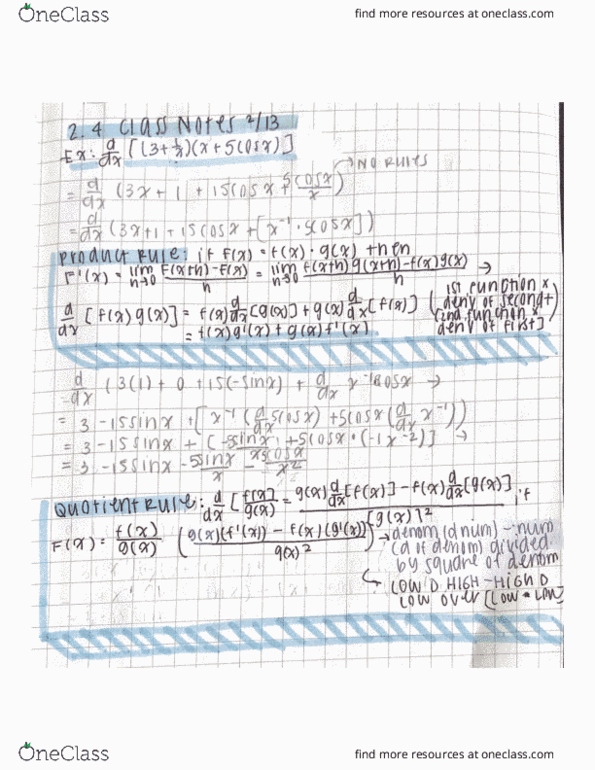 OneClass
find more resources at oneclass.com
2.4 Class Notes 2/13
Ex: d/dx [(3+1/x)(x+5cosx)]
→ NO RULES
= d/dx (3x + 1 + 15cosx + 5cosx/x)
= d/dx (3x+1+15cosx + [x⁻¹·5cosx])
Product Rule: if F(x) = f(x)·g(x) then
F'(x) = lim h→0 F(x+h)-F(x)/h = lim h→0 f(x+h)g(x+h)-f(x)g(x)/h →
d/dx [f(x)g(x)] = f(x) d/dx [g(x)] + g(x) d/dx [f(x)]
= f(x)g'(x) + g(x)f'(x)
(1st function x
deriv of second +
(2nd function x
deriv of first]
d/dx (3(1) + 0 + 15(-sinx) + d/dx x⁻¹ 5cosx →
= 3-15sinx + [x⁻¹ (d/dx 5cosx) + 5cosx (d/dx x⁻¹))
= 3-15sinx + [-5sinx/x + 5cosx·(-1x⁻²)] →
= 3-15sinx - 5sinx/x - 5cosx/x²
Quotient Rule: d/dx [f(x)/g(x) = g(x) d/dx [f(x)] - f(x) d/dx [g(x)] / [g(x)]² , if
F(x) = f(x)/g(x) (g(x)(f'(x)) - f(x)(g'(x))/g(x)²)
→ denom (d num) - num
(d of denom) divided
by square of denom
↳ LOW D HIGH - HIGH D
LOW OVER [LOW * LOW]
OneClass
find more resources at oneclass.com